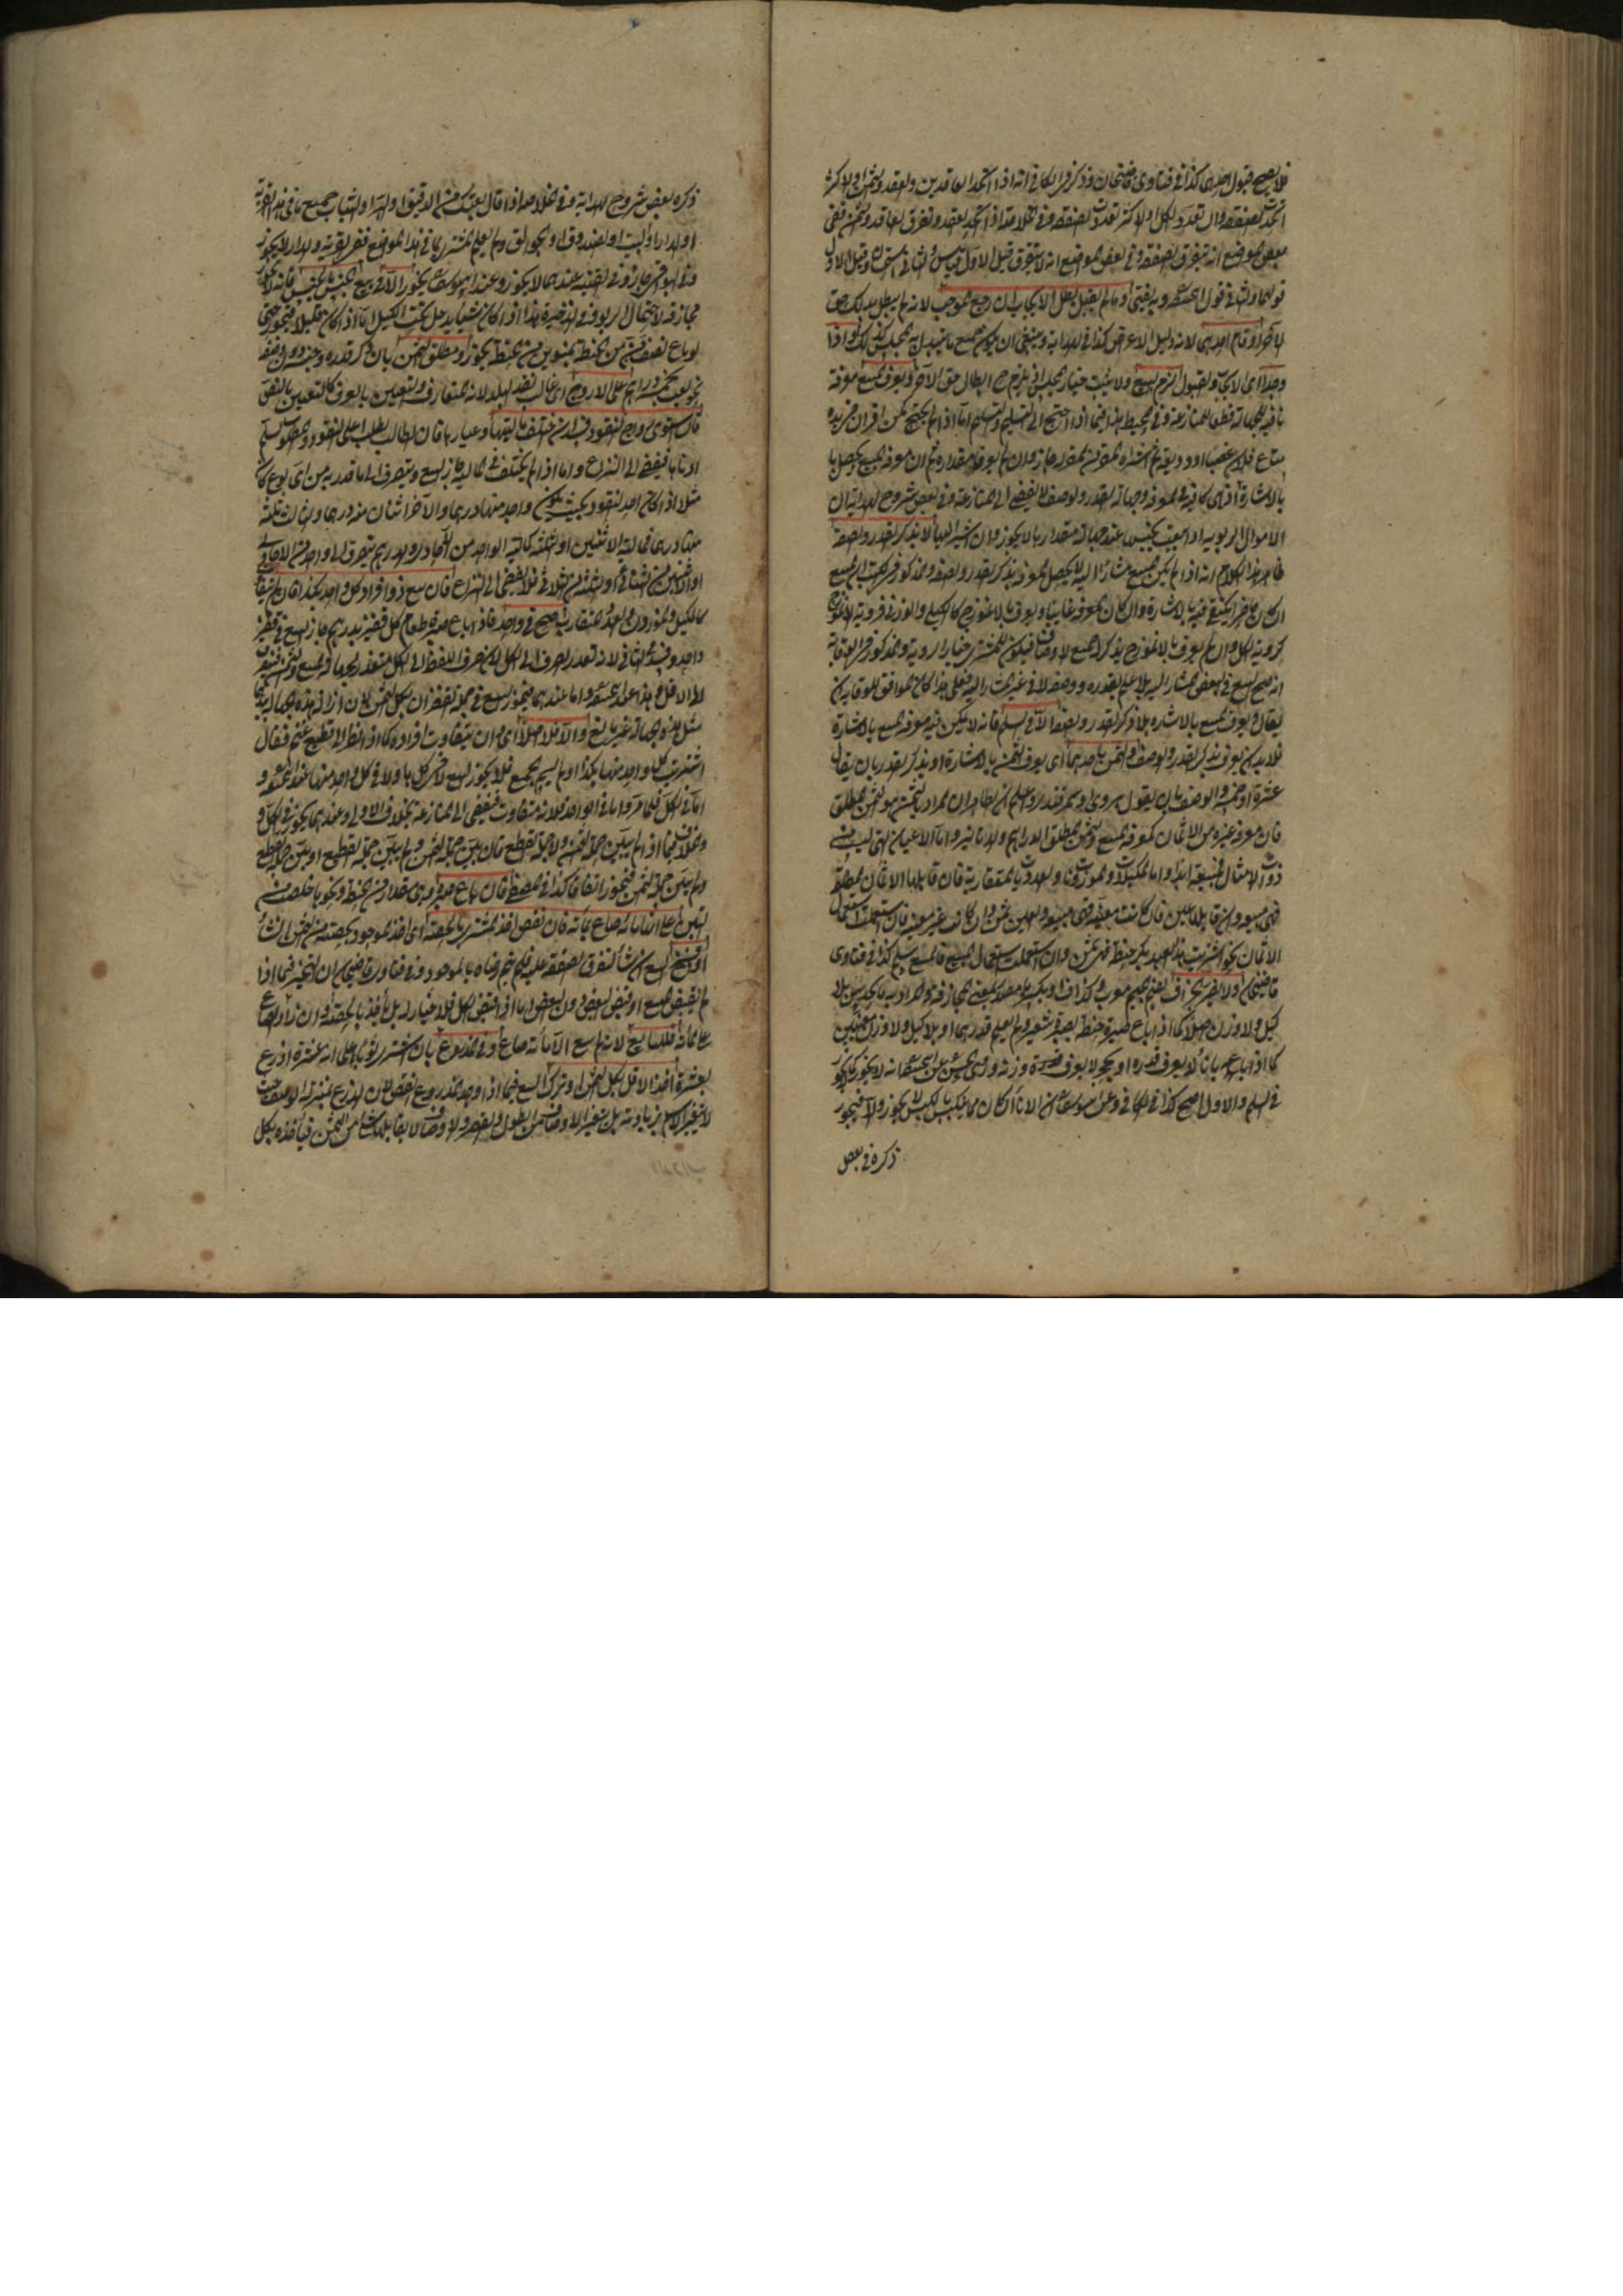 فلا يصح قبول احدهما كذا في فتاوى قاضيخان وذكر في الكافي انه اذا اتحد العاقدين والعقد والثمن او الاكثر
اتحدت الصفقة وان تعدد الكل او الاكثر تعددت الصفقة وفي الخلاصة اذا اتحد العقد وتفرق العاقد والثمن ففي
بعض المواضع انه تتفرق الصفقة وفي بعض المواضع انه لا تتفرق قيل الاول قياس والثاني استحسان وقيل الاول
قولهما والثاني قول ابي حنيفة وبه يفتى وما لم يقبل بطل الايجاب ان رجع الموجب لانه لم يبطل بذلك حق
الآخر او قام احدهما لانه دليل الاعراض كذا في الهداية وينبغي ان يكون جميع ما يتبدل به المجلس كذلك واذا
وجدا اى الايجاب والقبول لزم البيع ولا يثبت خيار المجلس اذ يلزم ح ابطال حق الآخر ويعرف المبيع معرفة
نافية للجهالة قطعا للمنازعة وفي المحيط هذا فيما اذا احتيج الى التسليم والتسلم اما اذا لم يحتج كمن اقر ان في يده
متاع فلان غصبا او وديعة ثم اشتراه المقر من المقر له جاز وان لم يعرفا مقداره ثم ان معرفة المبيع يحصل با
بالاشارة اذ هي كافية في المعرفة وجهالة القدر والوصف لا يفضي الى المنازعة وفي بعض شروح الهداية ان
الاموال الربوية اذا بيعت بجنسها عند جهالة مقدارها لا يجوز وان اشير اليها لا بذكر القدر والصفة
ظاهر هذا الكلام انه اذا لم يكن المبيع مشارا اليه لا يحصل المعرفة بذكر القدر والصفة والمذكور في الكتب ان المبيع
ان كان حاضرا يكتفى فيه بالاشارة وان كان المعرفة غايبا ويعرف بالانموذج كالكيلي والوزني فرؤية الانموذج
كرؤية الكل وان لم يعرف بالانموذج يذكر الجميع الاوصاف فيكون للمشتري خيار الرؤية والمذكور في الوقاية
انه صح البيع في العوض المشار اليه بلا علم بقدره ووصفه لا في غير المشار اليه فعلى هذا كان الموافق للوقاية ان
يقال ويعرف المبيع بالاشارة بلا ذكر القدر والصفة الا في السلم فانه لا يمكن فيه معرفة المبيع بالاشارة
فلا بد ان يعرف بذكر القدر والوصف والثمن باحدهما اى يعرف الثمن بالاشارة او بذكر القدر بان يقال
عشرة او خمسة والوصف بان يقول
فان معرفة غيره من الاثمان كمعرفة المبيع والثمن المطلق الدراهم والدنانير واما الاعيان التي ليست من
ذوات الامثال فمبيعة ابدا واما المكيلات والموزونات والعدديات المتقاربة فان قابلها الاثمان المطلقة
فهي مبيعة وان قابلها عين فان كانت معينة فهي مبيعة والعين ثمن وان كان غير معينة فان استعملت استعمال
الاثمان نحو اشتريت هذا العبد بكر حنطة فهي ثمن وان استعملت استعمال المبيع فالمبيع سلم كذا في فتاوى
قاضيخان ولا يضر الجزاف بفتح الجيم معرب كذاف او بكسرها مصدر بمعنى المجازفة والمراد به ما يحد بين بلا
كيل ولا وزن اصلا كما اذا باع صبرة حنطة بصبرة شعير ولم يعلم قدرهما او بلا كيل ولا وزن معينين
كما اذا باعه باناء لا يعرف قدره او بحجر لا يعرف وزنه وروى الحسن عن ابي حنيفة انه لا يجوز كما لا يجوز
في السلم والاول اصح كذا في الكافي وعن ابي يوسف ان الاناء ان كان مما ينكبس بالكبس لا يجوز والا فيجوز
ذكره في بعض
ذكره بعض شروح الهداية وفي الخلاصة اذا قال بعتك هذا الدقيق او البر او الثياب جميع ما في هذه القرية
او الدار او البيت او الصندوق او الجوالق ولم يعلم المشتري ما في هذا المواضع ففي القرية والدار لا يجوز
وفي البواقي جاز وفي القنية عندهما لا يجوز وعند ابي يوسف يجوز الا في بيع الجنس بالجنس فانه لا يجوز
مجازفة لاحتمال الربوا وفي الذخيرة هذا اذا كان شيئا يدخل تحت الكيل اما اذا كان قليلا فيجوز حتى
لو باع نصف من من الحنطة بمنوين من الحنطة يجوز ومطلق الثمن بان ذكر قدره وجنسه دون وصفه
نحو بعت بخمسة دراهم على الاروج اى غالب نقد البلد لانه المتعارف والتعيين بالعرف كالتعيين بالنص
فان استوى رواج النقود فسد ان اختلف ماليتها وعيارها فان الطالب يطلب اعلى النقود والمطلوب يسلم
ادناها فيفضي الى النزاع واما اذا لم يختلف في المالية جاز البيع ويتصرف الى ما قدر به من اى نوع كان
مثلا اذا كان احد النقود بحيث يكون واحد منها درهما والآخر اثنان منه درهما والثالث ثلثة
منها درهما فمالية الاثنين او الثلثة كمالية الواحد من الآحاد والدرهم يتصرف الى واحد من الاحادي
او اثنين من الثنائي او الثلثة من الثلاثي فلا يفضي الى النزاع فان بيع ذو افراد كل واحد بكذا فان لم يتفاوت
كالكيل والموزون والعدد المتقارب صح في واحد فاذا باع صبرة طعام كل قفيز بدرهم جاز البيع في قفيز
واحد وفسد في الباقي لانه تعذر الصرف الى الكل لان صرف اللفظ الى الكل متعذر لجهالة المبيع والثمن فيتصرف
الى الاقل وهذا عند ابي حنيفة واما عندهما فيجوز البيع في جملة القفزان بكل الثمن لان ازالة هذه الجهالة بيدهما
مثل هذه الجهالة غير مانع والا فلا اصلا اى وان يتفاوت افراده كما اذا نظر الى قطيع غنم فقال
اشتريت كل واحد منها بكذا ولم يسم الجميع فلا يجوز البيع لا في كلها ولا في كل واحد منها عند ابي حنيفة و
اما في الكل فلما مر واما في الواحد فلانه متفاوت فيفضي الى المنازعة بخلاف الاولى وعندهما يجوز في الكل و
الخلاف فيما اذا لم يبين جملة الثمن ولا جملة القطيع فان بين جملة الثمن ولم يبين جملة القطيع او بين جملة القطيع
ولم يبين جملة الثمن فيجوز اتفاقا كذا في المصفى فان باع صبرة هي مقدار من الحنطة ونحوها
على انها مائة صاع بمائة فان نقص اخذ المشتري بالحصة اى اخذ الموجود بحصته من الثمن ان شاء
او فسخ البيع ان شاء لتفرق الصفقة عليه فلم يتم رضاه بالموجود وفي فتاوى قاضيخان ان التخيير فيما اذا
لم يقبض المبيع او قبض البعض دون البعض اما اذا قبض الكل فلا خيار له بل يأخذ بالحصة وان زاد الصاع
على مائة فللبائع لانه لم يبع الا مائة صاع وفي المذروع بان اشترى ثوبا على انه عشرة اذرع
بعشرة اخذ الاقل بكل الثمن او ترك البيع فيما اذا وجد المذروع انقص لان الذرع بمنزلة الوصف حيث
لا يتغير الاسم بزيادته بل يتغير الاوصاف من الطول والقصر والاوصاف لا يقابلها شيء من الثمن فيأخذه بكل